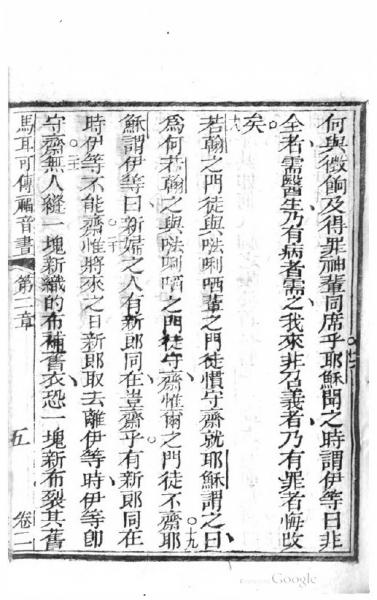 何與徵餉及得罪神輩同席乎耶穌聞之時謂伊等曰非
全者需醫生乃有病者需之我來非召義者乃有罪者悔改
矣
若翰之門徒與㕸唎哂輩之門徒慣守齋就耶穌謂之曰
為何若翰之與㕸唎哂之門徒守齋惟爾之門徒不齋耶
穌謂伊等曰新婦之人有新郎同在豈齋乎有新郎同在
時伊等不能齋惟將來之日新郎取去離伊等時伊等卽
守齋無人縫一塊新織的布補舊衣恐一塊新布裂其舊
馬耳可傳福音書 第二章 五 卷二
Google